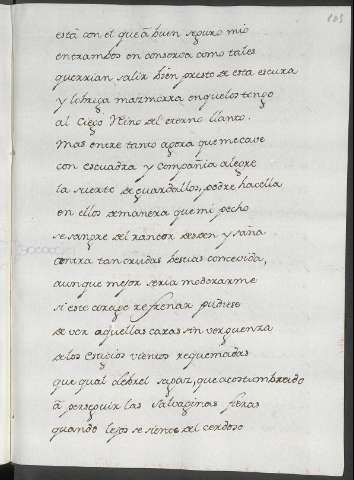 103
está con el que à buen seguro mio
entrambos en consorcio como tales
querrian salir bien presto de esta escura
y lobriga mazmorra en que los tengo
al Ciego Nino del eterno llanto.
Mas entre tanto agora que me cave
con escuadra y Compañia alegre
la suerte de guardallos, podre hacella
en ellos de manera que mi pecho
se sangre del rancor desden y saña
contra tan crudas bestias concevida,
aunque mejor seria moderarme
si este corage refrenar pudiese
de ver aquellas caras sin verguenza
de los Estigios vientos requemadas
que qual lebrel sagaz, que acostumbrado
à perseguir las salvaginas fieras
quando lejos se siente del cerdoso